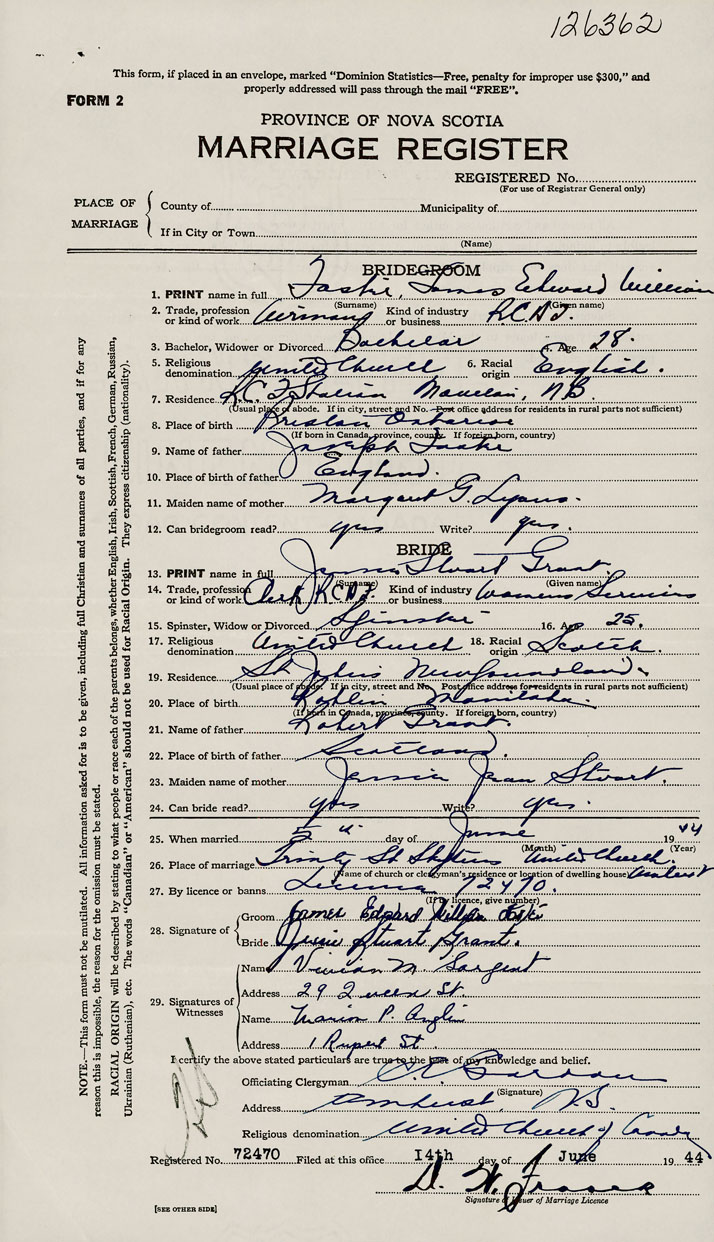 126362
This form, if placed in an envelope, marked "Dominion Statistics—Free, penalty for improper use $300," and
properly addressed will pass through the mail "FREE".
FORM 2
PROVINCE OF NOVA SCOTIA
MARRIAGE REGISTER
REGISTERED No.
(For use of Registrar General only)
PLACE OF MARRIAGE
County of Municipality of
If in City or Town
(Name)
BRIDEGROOM
1. PRINT name in full James Edward William
(Surname) (Given name)
2. Trade, profession or kind of work Airman Kind of industry or business R.C.A.F.
3. Bachelor, Widower or Divorced Bachelor 4. Age 28.
5. Religious denomination United Church 6. Racial origin English.
7. Residence R.C.A.F. Station N.B.
(Usual place of abode. If in city, street and No. Post office address for residents in rural parts not sufficient)
8. Place of birth Ontario
(If born in Canada, province, county. If foreign born, country)
9. Name of father Joseph
10. Place of birth of father England.
11. Maiden name of mother Margaret G. Lyons.
12. Can bridegroom read? yes Write? yes.
BRIDE
13. PRINT name in full Jessie Stuart Grant.
(Surname) (Given name)
14. Trade, profession or kind of work Clerk R.C.A.F. Kind of industry or business Womens Services
15. Spinster, Widow or Divorced Spinster 16. Age 25.
17. Religious denomination United Church 18. Racial origin Scotch.
19. Residence St Johns Newfoundland.
(Usual place of abode. If in city, street and No. Post office address for residents in rural parts not sufficient)
20. Place of birth Manitoba.
(If born in Canada, province, county. If foreign born, country)
21. Name of father Robert Grant.
22. Place of birth of father Scotland.
23. Maiden name of mother Jessie Jean Stuart.
24. Can bride read? yes Write? yes.
25. When married 5th day of June 1944
(Month) (Year)
26. Place of marriage Trinity St Stephens United Church. Amherst
(Name of church or clergyman's residence or location of dwelling house)
27. By licence or banns License 72470.
(If by licence, give number)
28. Signature of
Groom James Edward William
Bride Jessie Stuart Grant.
29. Signatures of Witnesses
Name Vivian M. Sargent
Address 29 Queen St.
Name Marion P. Anglin
Address 1 Rupert St.
I certify the above stated particulars are true to the best of my knowledge and belief.
Officiating Clergyman
(Signature)
Address Amherst, N.S.
Religious denomination United Church of Canada
Registered No. 72470 Filed at this office 14th day of June 1944
D. W. Fraser
Signature of Issuer of Marriage Licence
[SEE OTHER SIDE]
NOTE.—This form must not be mutilated. All information asked for is to be given, including full Christian and surnames of all parties, and if for any
reason this is impossible, the reason for the omission must be stated.
RACIAL ORIGIN will be described by stating to what people or race each of the parents belongs, whether English, Irish, Scottish, French, German, Russian,
Ukrainian (Ruthenian), etc. The words "Canadian" or "American" should not be used for Racial Origin. They express citizenship (nationality).